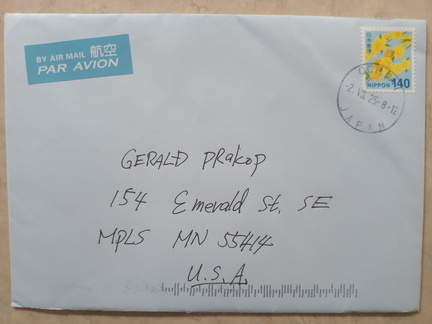 BY AIR MAIL 航空
PAR AVION
日本郵便
NIPPON 140
JAPAN
GERALD PRakop
154 Emerald St. SE
MPLS MN 55414
U.S.A.